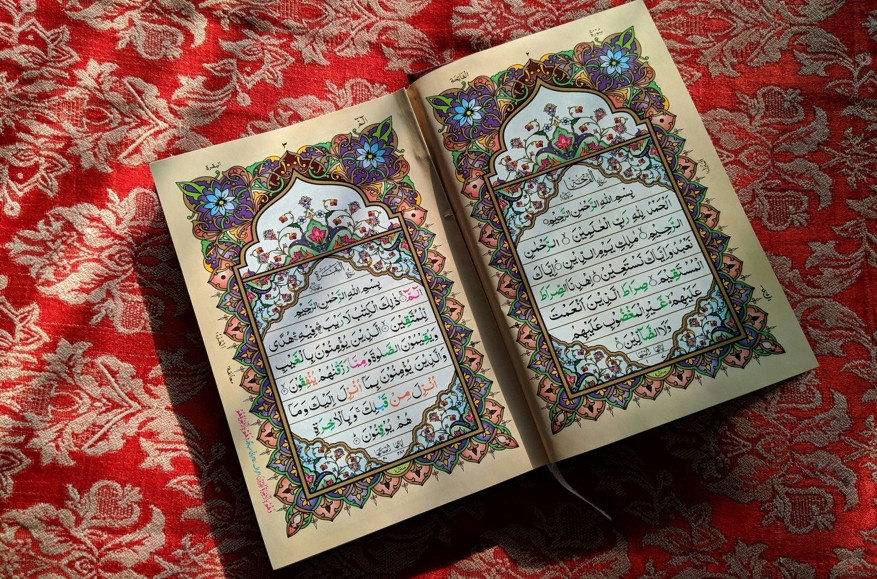 ٢
بِسْمِ اللهِ الرَّحْمٰنِ الرَّحِيْمِ
اَلْحَمْدُ لِلّٰهِ رَبِّ الْعٰلَمِيْنَ ۙ الرَّحْمٰنِ
الرَّحِيْمِ ۙ مٰلِكِ يَوْمِ الدِّيْنِ ؕ اِيَّاكَ
نَعْبُدُ وَاِيَّاكَ نَسْتَعِيْنُ ؕ اِهْدِنَا الصِّرَاطَ
الْمُسْتَقِيْمَ ۙ صِرَاطَ الَّذِيْنَ اَنْعَمْتَ
عَلَيْهِمْ ۙ غَيْرِ الْمَغْضُوْبِ عَلَيْهِمْ
وَلَا الضَّآلِّيْنَ
٣
البقرة
بِسْمِ اللهِ الرَّحْمٰنِ الرَّحِيْمِ
الٓمّٓ ۚ ذٰلِكَ الْكِتٰبُ لَا رَيْبَ ۛ فِيْهِ ۛ هُدًى
لِّلْمُتَّقِيْنَ ۙ الَّذِيْنَ يُؤْمِنُوْنَ بِالْغَيْبِ
وَيُقِيْمُوْنَ الصَّلٰوةَ وَمِمَّا رَزَقْنٰهُمْ يُنْفِقُوْنَ ۙ
وَالَّذِيْنَ يُؤْمِنُوْنَ بِمَآ اُنْزِلَ اِلَيْكَ وَمَآ
اُنْزِلَ مِنْ قَبْلِكَ ۚ وَبِالْاٰخِرَةِ
هُمْ يُوْقِنُوْنَ